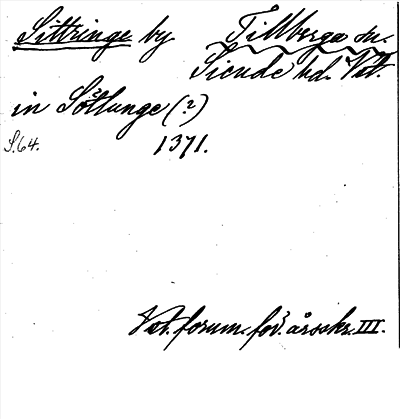 Sittringe by Tillberga sn.
Siende hd. Vstl.
in Sötlunge (?)
S. 64. 1371.
Vst. fornm. för. årsskr. III.